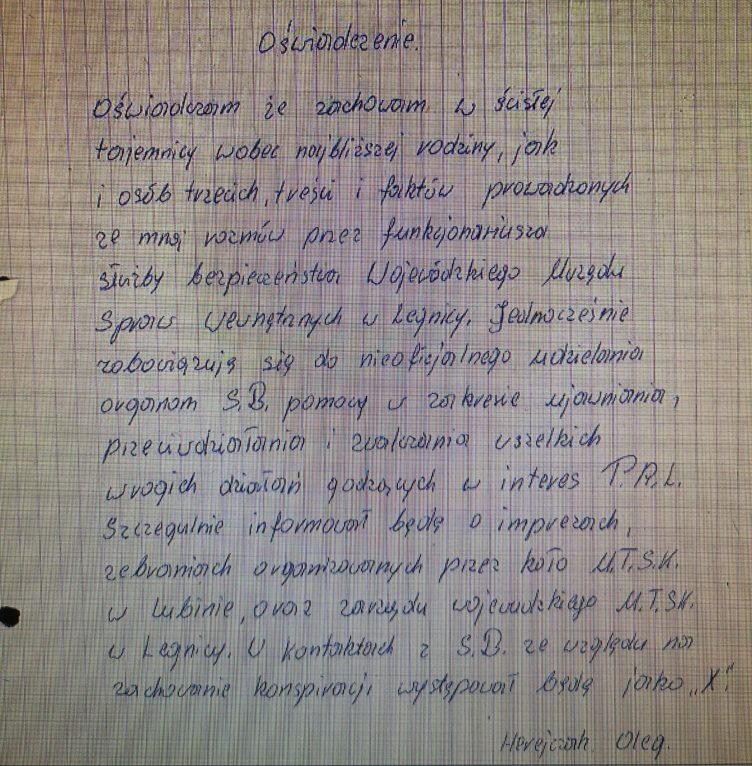 Oświadczenie.
Oświadczam że zachowam w ścisłej
tajemnicy wobec najbliższej rodziny, jak
i osób trzecich, treści i faktów prowadzonych
ze mną rozmów przez funkcjonariusza
służby bezpieczeństwa Wojewódzkiego Urzędu
Spraw Wewnętrznych w Legnicy. Jednocześnie
zobowiązuję się do nieoficjalnego udzielania
organom S.B. pomocy w zakresie ujawniania,
przeciwdziałania i zwalczania wszelkich
wrogich działań godzących w interes P.R.L.
Szczegulnie informował będę o imprezach,
zebraniach organizowanych przez koło U.T.S.K.
w Lubinie, oraz zarządu wojewudzkiego U.T.SK.
w Legnicy. W kontaktach z S.B. ze względu na
zachowanie konspiracji występował będę jako „X".
Oleg.